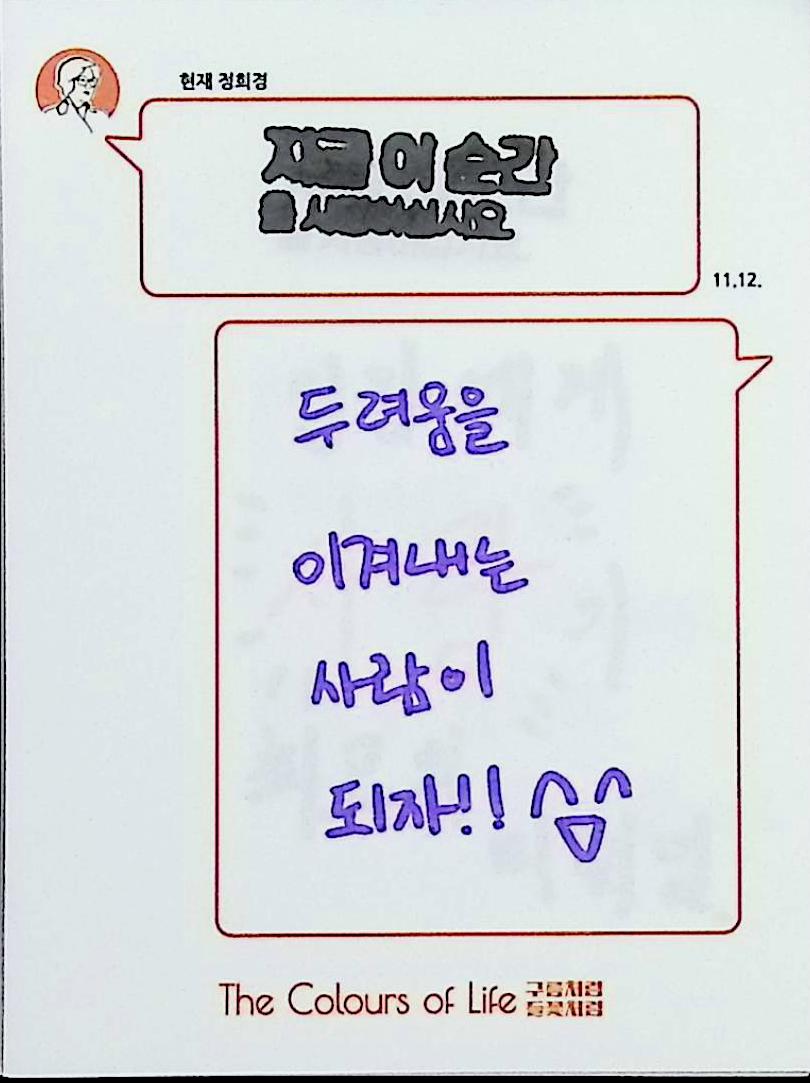 현재 정희경
지금 이 순간
을 사랑하십시오
11.12.
두려움을
이겨내는
사람이
되자!!
The Colours of Life 구름처럼
들꽃처럼